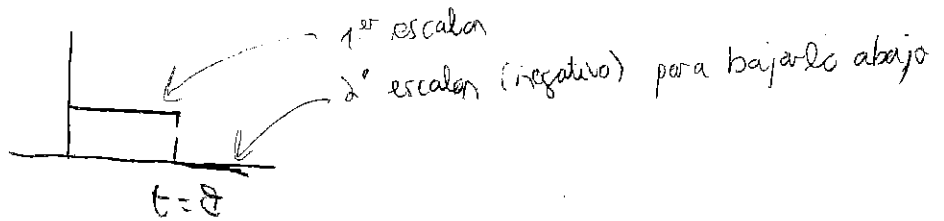 1er escalon
2º escalon (negativo) para bajarlo abajo
t=